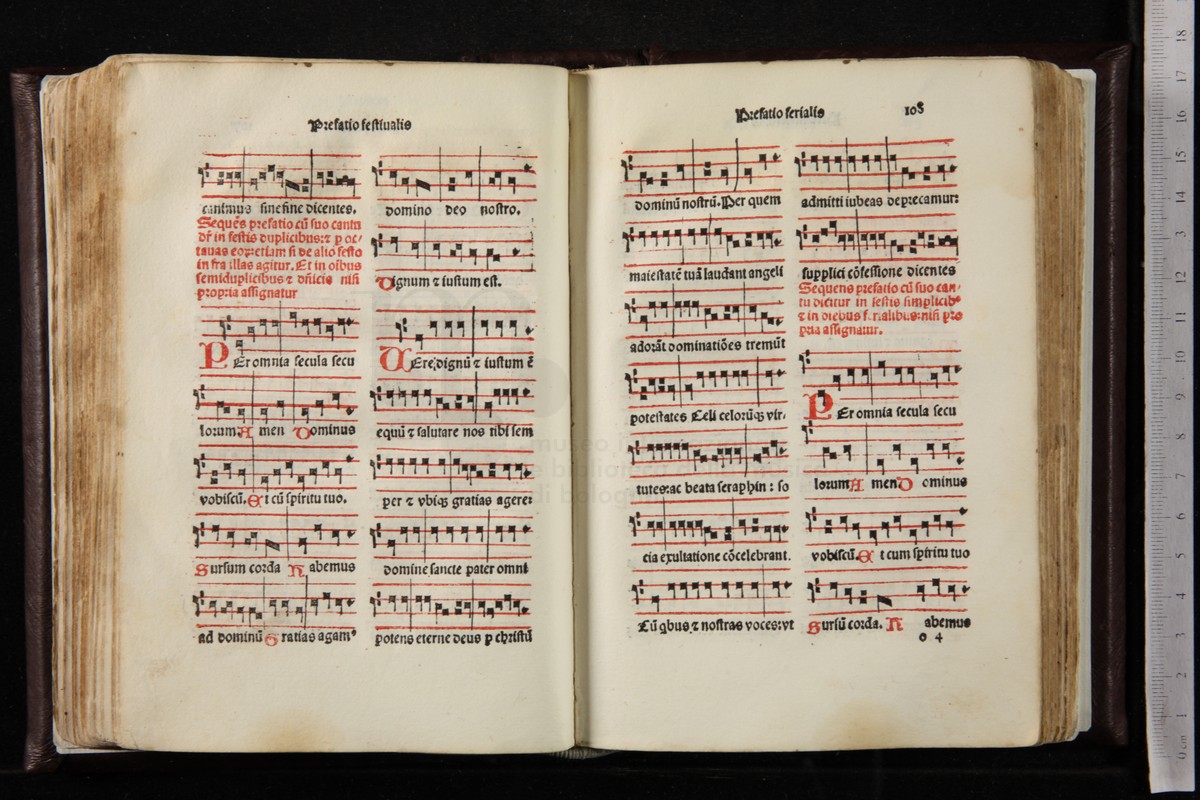 Prefatio festiualis
canimus sine fine dicentes.
Sequēs prefatio cū suo cantu
dr̄ in festis duplicibus: ⁊ p oc/
tauas eorū etiam si de alio festo
infra illas agitur. Et in oībus
semiduplicibus ⁊ dn̄icis nisi
propria assignatur
PEr omnia secula secu
lorum. A men Dominus
vobiscū. Et cū spiritu tuo.
Sursum corda Habemus
ad dominū Gratias agam⁹
domino deo nostro.
Dignum ⁊ iustum est.
VEre dignū ⁊ iustum ē
equū ⁊ salutare nos tibi sem
per ⁊ vbiqȝ gratias agere:
domine sancte pater omni
potens eterne deus p christū
Prefatio ferialis
108
dominū nostrū. Per quem
maiestatē tuā laudant angeli
adorāt dominatiōes tremūt
potestates Celi celorūqȝ vir/
tutes: ac beata seraphin: so
cia exultatione cōcelebrant.
Cū qbus ⁊ nostras voces: vt
admitti iubeas deprecamur:
supplici cōfessione dicentes
Sequens prefatio cū suo can/
tu dicitur in festis simplicib⁹
⁊ in diebus ferialibus: nisi pro
pria assignatur.
PEr omnia secula secu
lorum A men Dominus
vobiscū. Et cum spiritu tuo
Sursū corda. Habemus
o 4
museo
biblioteca
di bologna
0 cm 1 2 3 4 5 6 7 8 9 10 11 12 13 14 15 16 17 18